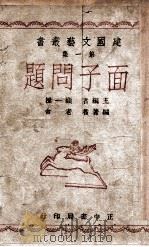 建國文藝叢書
第一集
面子問題
主編者 顧一樵
編著者 老舍
正中書局印行